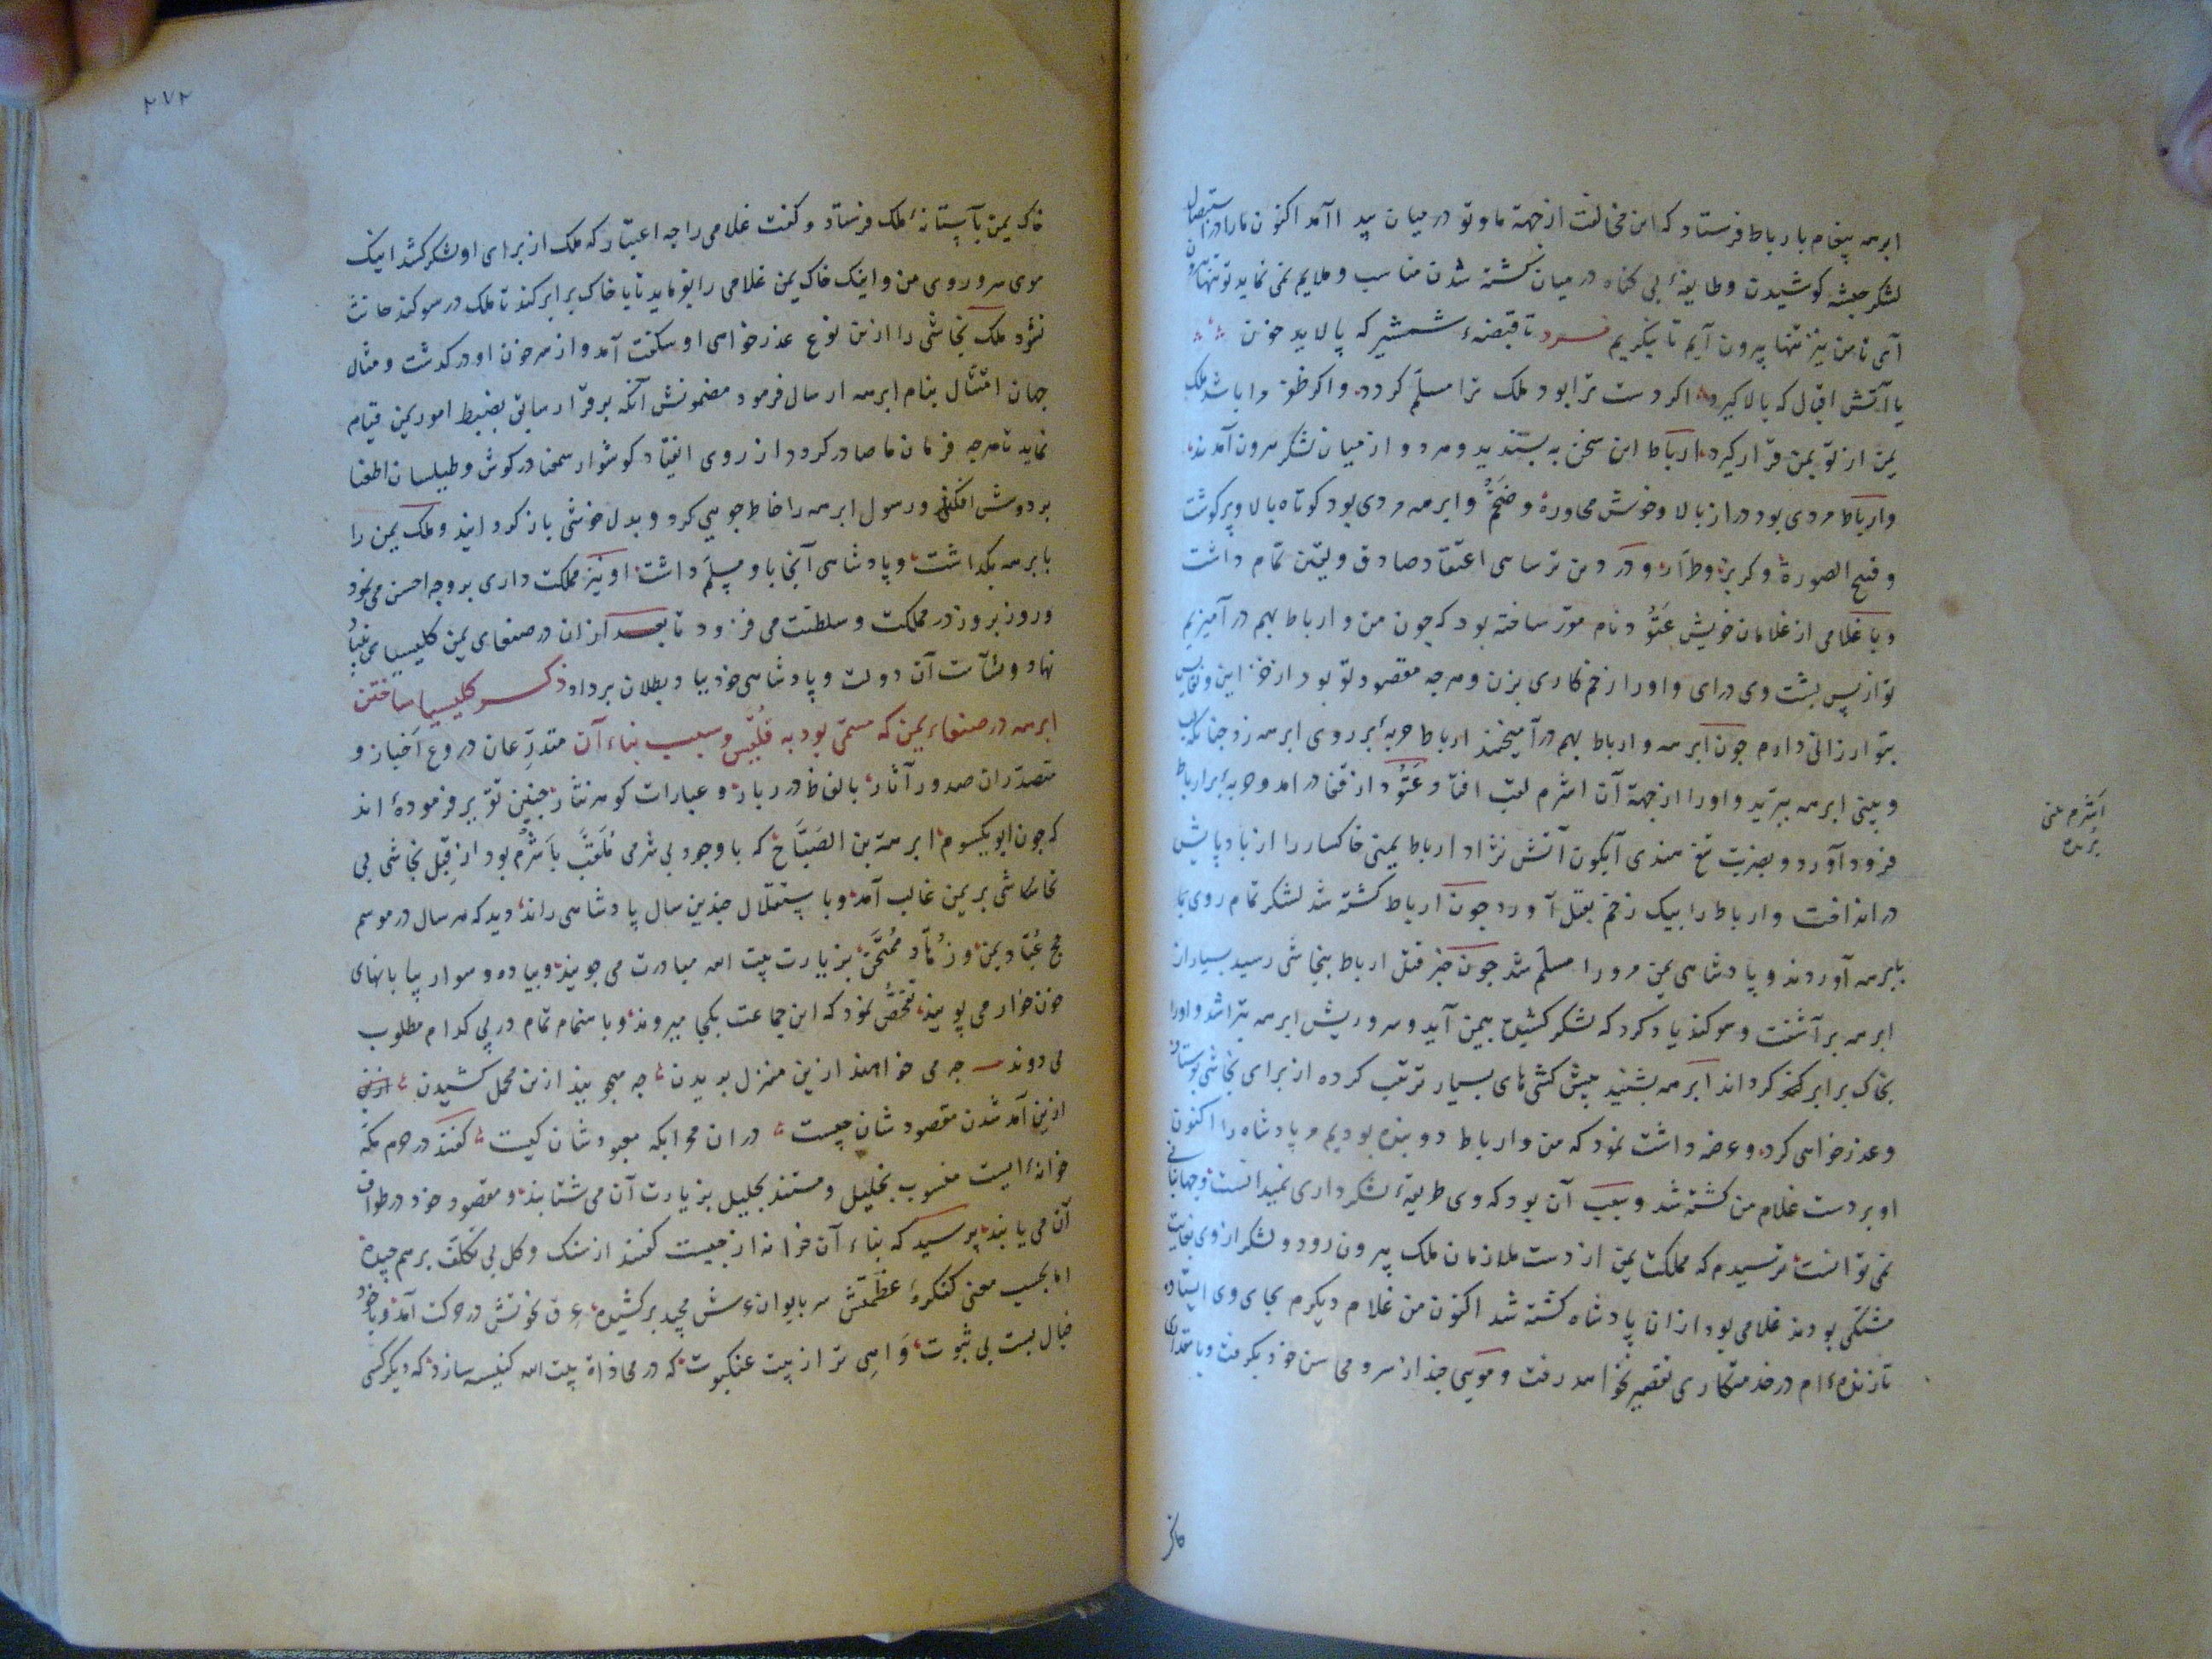 ابرهه پیغام بارباط فرستاد که این مخالفت از جهة ما و تو در میان پیدا آمد اکنون ما را در استیصال
لشکر حبشه کوشیدن و طایفهٔ بی کناه در میان کشته شدن مناسب و ملایم نمی نماید تو تنها بیرون
آی تا من نیز تنها بیرون آیم تا بنکریم فرد تا قبضهٔ شمشیر که پالاید خون
یا آتش اقبال که بالا کیرد اکر دست ترا بود ملک ترا مسلّم کردد و اکر ظفر مرا باشد ملک
یمن از تو بمن قرار کیرد ارباط این سخن به پسندید و هر دو از میان لشکر بیرون آمدند
و ارباط مردی بود دراز بالا و خوش محاوره و ضخم و ابرهه مردی بود کوتاه بالا و پر کوشت
و قبیح الصورة و کربز و طرّار و در دین ترسایی اعتقاد صادق و یقین تمام داشت
و با غلامی از غلامان خویش عَتوُد نام مقرر ساخته بود که چون من و ارباط بهم در آمیزیم
تو از پس پشت وی در آی و او را زخم کاری بزن و هر چه مقصود تو بود از خزاین و نفایس
بتو ارزانی دارم چون ابرهه و ارباط بهم در آمیختند ارباط حربهٔ بر روی ابرهه زد چنانکه لب
و بینی ابرهه ببرید و او را از جهة آن اشرم لقب افتاد و عَتوُد از قفا در امد و حربهٔ بر ارباط
فرود آورد و بضربت تیغ هندی آبکون آتش نژاد ارباط یمنی خاکسار را از باد پایش
در انداخت و ارباط را بیک زخم بقتل آورد چون ارباط کشته شد لشکر تمام روی
بابرهه آوردند و پادشاهی یمن مر او را مسلّم شد چون خبر قتل ارباط بنجاشی رسید بسیار از
ابرهه بر آشفت و سوکند یاد کرد که لشکر کشیده بیمن آید و سر و ریش ابرهه بتراشد و او را
بخاک برابر کرداند ابرهه بشنید پیش کشی های بسیار ترتیب کرده از برای نجاشی فرستاد
و عذر خواهی کرد و عرضه داشت نمود که من و ارباط دو بنده بودیم پادشاه را اکنون
او بر دست غلام من کشته شد و سبب آن بود که وی طریقهٔ لشکر داری نمیدانست و جهانبانی
نمی توانست ترسیدم که مملکت یمن از دست ملازمان ملک بیرون رود و لشکر از وی بغایت
مشتکی بودند غلامی بود از ان پادشاه کشته شد اکنون من غلام دیکرم بجای وی ایستاده
تا زنده‌ام در خدمتکاری تقصیر نخواهد رفت و مویی چند از سر و محاسن خود بکرفت و با مقداری
خاک
اَشرم یعنی
بریده
۲۷۲
خاک یمن بآستانهٔ ملک فرستاد و کفت غلامی را چه اعتبار که ملک از برای او لشکر کشد اینک
موی سر و روی من و اینک خاک یمن غلامی را بفرماید تا با خاک برابر کند تا ملک در سوکند حانث
نشود ملک نجاشی را ازین نوع عذر خواهی او شکفت آمد و از سر خون او در کذشت و مثال
جهان امتثال بنام ابرهه ارسال فرمود مضمونش آنکه بر قرار سابق بضبط امور یمن قیام
نماید تا هر چه فرمان ما صادر کردد از روی انقیاد کوشوار سمعنا در کوش و طیلسان اطعنا
بر دوش افکند و رسول ابرهه را خاطر جویی کرد و بدل خوشی باز کردانید و ملک یمن را
بابرهه بکذاشت و پادشاهی آنجا باو مسلّم داشت او نیز مملکت داری بر وجه احسن می نمود
و روز بروز در مملکت و سلطنت می فزود تا بعد از ان در صنعای یمن کلیسیا
نهاد و آن دولت و پادشاهی خود بباد بطلان بر داد ذکر کلیسیا ساختن
ابرهه در صنعاء یمن که مسمّی بود به قُلَّیس و سبب بناء آن متدرّعان دروع اَخبار و
متصدّران صدور آثار بالفاظ درر بار و عبارات کوهر نثار چنین تقریر فرموده‌اند
که چون ابو یکسوم ابرهة بن الصَبَّاح که با وجود بی شرمی مُلَقَّب بأشرم بود از قِبَل نجاشی بی
تحاشی بر یمن غالب آمد و با ستقلال چندین سال پادشاهی راند دید که هر سال در موسم
حج عُبّاد یمن و زُهّاد بزیارت بیت الله مبادرت می جویند و پیاده و سوار بیابانهای
خون خوار می پویند تفحّص نمود که این جماعت بکجا میروند و با هتمام تمام در پی کدام مطلوب
می دوند چه می خواهند ازین منزل بریدن چه میجویند ازین محمل کشیدن
ازین آمد شدن مقصود شان چیست در ان محرابکه معبود شان کیست کفتند در حرم مکّه
خوانهٔ ایست منسوب بخلیل و مستند بجلیل بزیارت آن می شتابند و مقصود خود در طواف
آن می یابند پرسید که بناء آن خوانه از چیست کفتند از سنک و کل بی تکلّف بر هم چیده
اما بحسب معنی کنکرهٔ عظمتش سر بایوان عرش مجید بر کشیده عرق نخوتش در حرکت آمد و با خود
خیال بست بی ثبوت و اهی تر از بیت عنکبوت که در محاذاة بیت الله کنیسه سازد که دیکر کسی